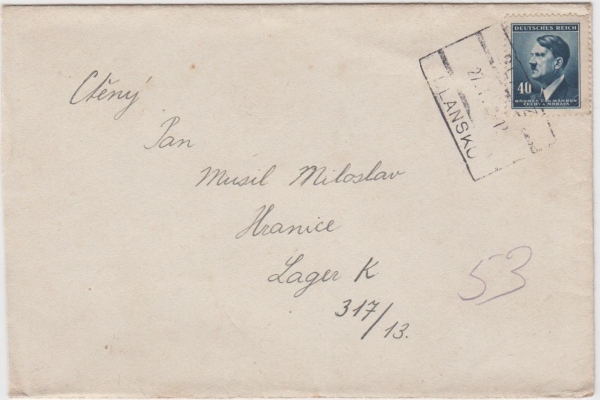 DEUTSCHES REICH
40
BÖHMEN UND MÄHREN
ČECHY A MORAVA
LANSKO
Ctěný
Pan
Musil Miloslav
Hranice
Lager K
317/13.
53